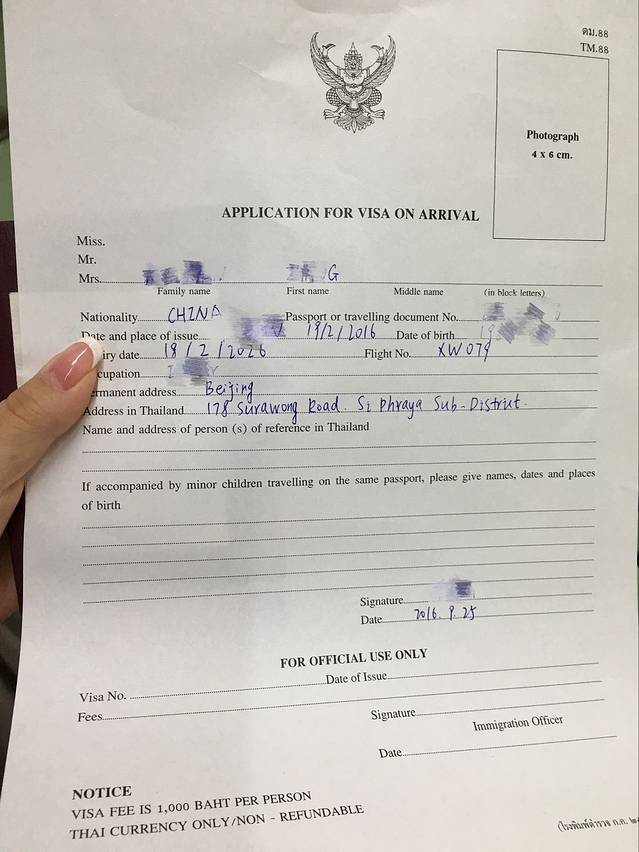 ตม.88
TM.88
Photograph
4 x 6 cm.
APPLICATION FOR VISA ON ARRIVAL
Miss.
Mr.
Mrs. G
Family name First name Middle name (in block letters)
Nationality CHINA Passport or travelling document No.
Date and place of issue 19/2/2016 Date of birth 19
iry date 18/2/2026 Flight No. XW079
cupation
rmanent address Beijing
Address in Thailand 178 Surawong Road. Si Phraya Sub-District.
Name and address of person (s) of reference in Thailand
If accompanied by minor children travelling on the same passport, please give names, dates and places
of birth
Signature
Date 2016.9.25
FOR OFFICIAL USE ONLY
Visa No. Date of Issue
Fees Signature
Immigration Officer
Date
NOTICE
VISA FEE IS 1,000 BAHT PER PERSON
THAI CURRENCY ONLY/NON - REFUNDABLE
(โรงพิมพ์ตำรวจ